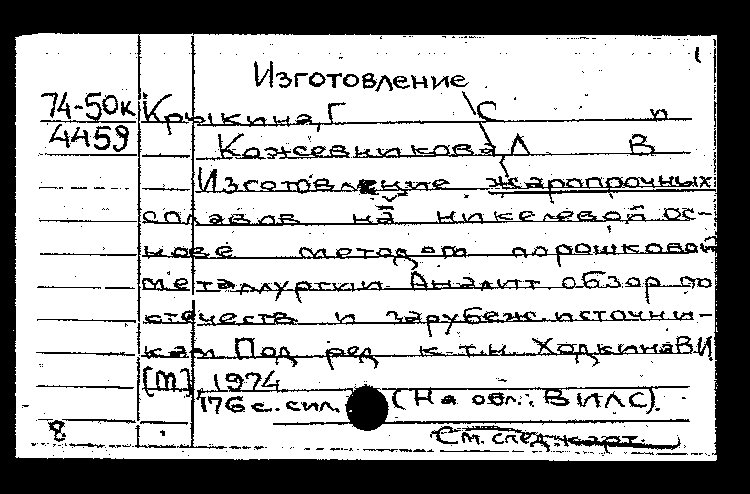 1
Изготовление
74-50к Крыкина, Г С п
4459 Кожевникова Л В
Изготовление жаропрочных
сплавов на никелевой ос-
нове методом порошковой
металлургии. Аналит обзор по
отечеств и зарубеж. источни-
кам Под ред к.т.н. Ходкина В.И
[М], 1974
176 с. сил. (На обл.: ВИЛС).
8 См. след. карт.